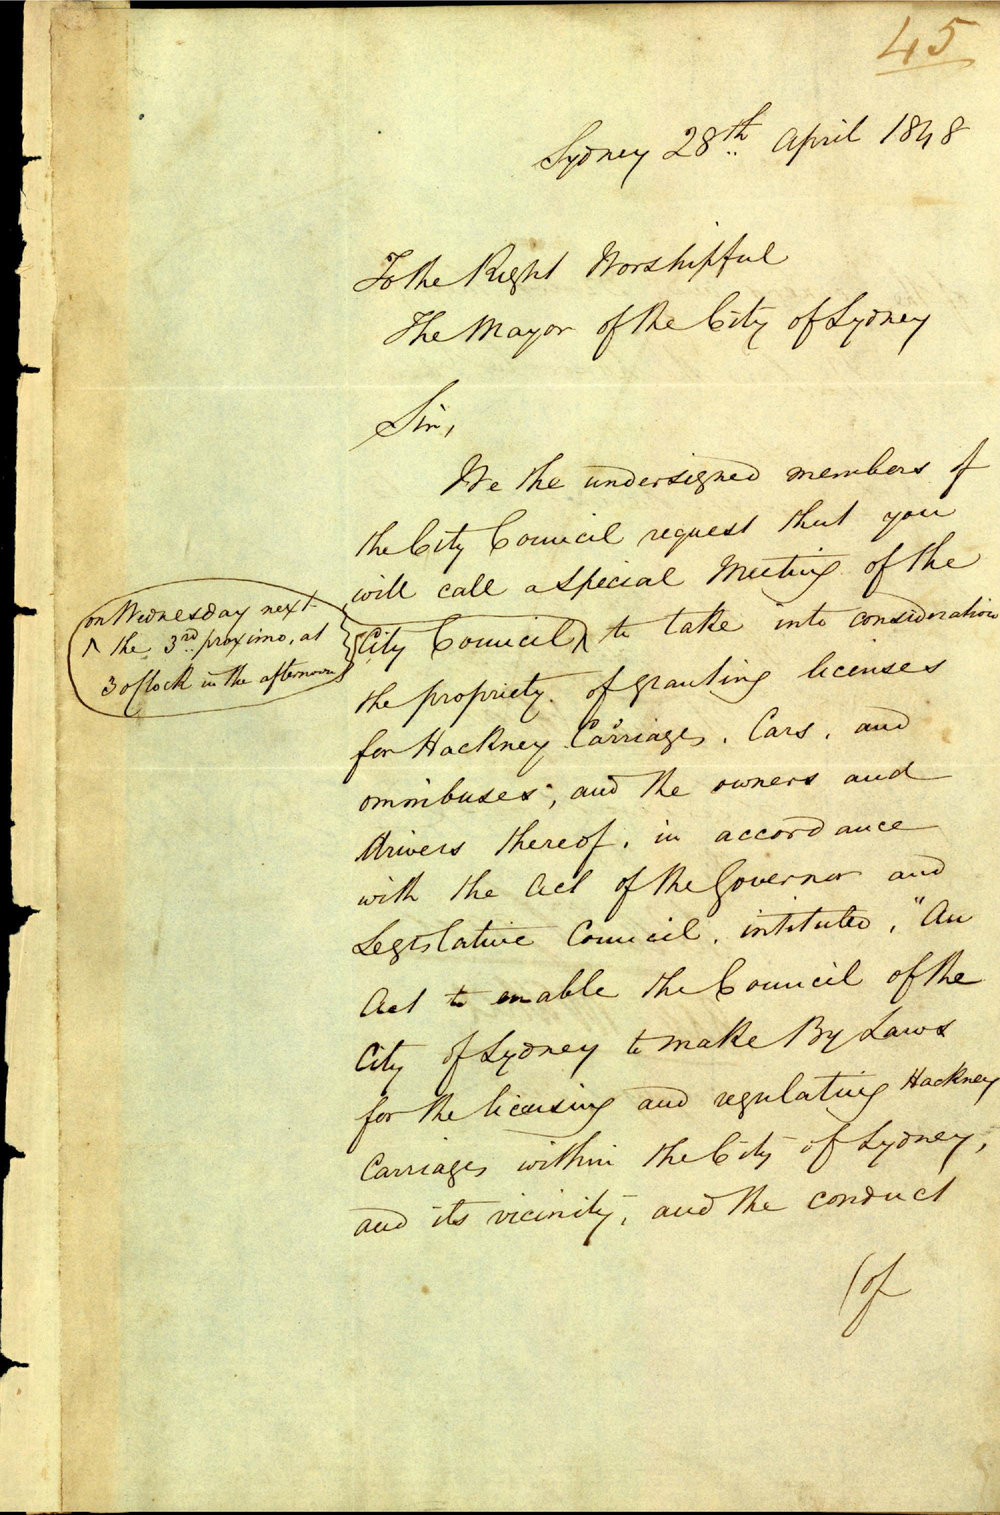 45
Sydney 28th April 1848
To the Right Worshipful
The Mayor of the City of Sydney
Sir,
We the undersigned members of
the City Council request that you
will call a Special Meeting of the
City Council ^ to take into consideration
on Wednesday next
^ the 3rd proximo, at
3 o'Clock in the afternoon
the propriety of granting licenses
for Hackney Carriages, Cars, and
omnibuses, and the owners and
drivers thereof, in accordance
with the Act of the Governor and
Legislative Council, intituled, "An
Act to enable the Council of the
City of Sydney to make By Laws
for the licensing and regulating Hackney
Carriages within the City of Sydney,
and its vicinity, and the conduct
(of